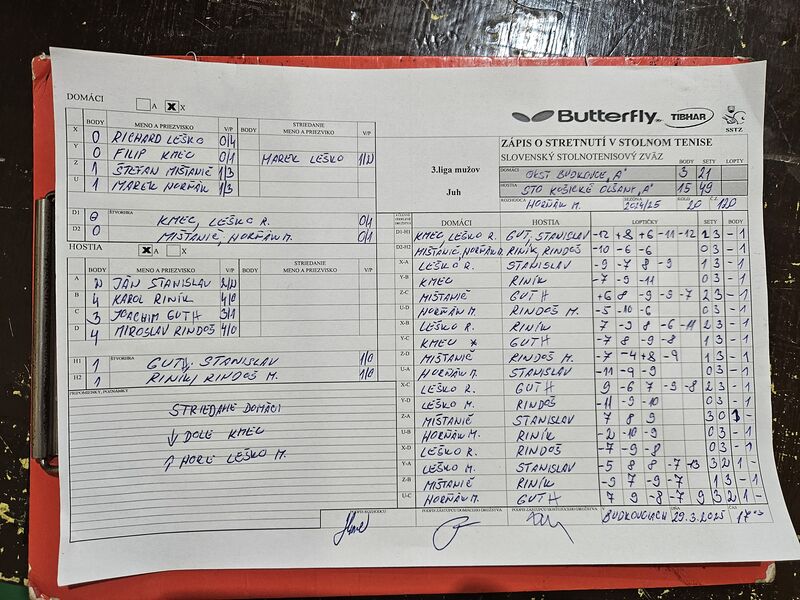 DOMÁCI A X
Butterfly TIBHAR SSTZ
BODY MENO A PRIEZVISKO V/P BODY STRIEDANIE MENO A PRIEZVISKO V/P
X 0 RICHARD LEŠKO 0/4
Y 0 FILIP KMEC 0/1 MAREK LEŠKO
Z 1 ŠTEFAN MIŠTANIČ 1/3
U 1 MAREK HORŇÁK 1/3
D1 0 ŠTVORHRA KMEC, LEŠKO R. 0/1
D2 0 MIŠTANIČ, HORŇÁK M. 0/1
HOSTIA A X
BODY MENO A PRIEZVISKO V/P BODY STRIEDANIE MENO A PRIEZVISKO V/P
A JÁN STANISLAV 2/2
B 4 KAROL RINÍK 4/0
C 3 JOACHIM GUTH 3/1
D 4 MIROSLAV RINDOŠ 4/0
H1 1 ŠTVORHRA GUTH, STANISLAV 1/0
H2 1 RINÍK, RINDOŠ M. 1/0
PRIPOMIENKY, POZNÁMKY
STRIEDANIE DOMÁCI
↓ DOLE KMEC
↑ HORE LEŠKO M.
3.liga mužov
Juh
ZÁPIS O STRETNUTÍ V STOLNOM TENISE
SLOVENSKÝ STOLNOTENISOVÝ ZVÄZ BODY SETY LOPTY
DOMÁCI OKST BUDKOVCE "A" 3 21
HOSTIA STO KOŠICKÉ OĽŠANY "A" 15 49
ROZHODCA HORŇÁK M. 2024/25 KOLO 20 Č. 120
DOMÁCI HOSTIA LOPTIČKY SETY BODY
D1-H1 KMEC, LEŠKO R. GUTH, STANISLAV -12 +8 +6 -11 -12 2 3 - 1
D2-H2 MIŠTANIČ, HORŇÁK M. RINÍK, RINDOŠ -10 -6 -6 0 3 - 1
X-A LEŠKO R. STANISLAV -9 -7 8 -9 1 3 - 1
Y-B KMEC RINÍK -7 -9 -11 0 3 - 1
Z-C MIŠTANIČ GUTH +6 8 -9 -9 -7 2 3 - 1
U-D HORŇÁK M. RINDOŠ M. -5 -10 -6 0 3 - 1
X-B LEŠKO R. RINÍK 7 -9 8 -6 -11 2 3 - 1
Y-C KMEC GUTH -7 8 -9 -8 1 3 - 1
Z-D MIŠTANIČ RINDOŠ M. -7 -4 +8 -9 1 3 - 1
U-A HORŇÁK M. STANISLAV -11 -9 -9 0 3 - 1
X-C LEŠKO R. GUTH 9 -6 7 -9 -8 2 3 - 1
Y-D LEŠKO M. RINDOŠ -11 -9 -10 0 3 - 1
Z-A MIŠTANIČ STANISLAV 7 8 9 3 0 1 -
U-B HORŇÁK M. RINÍK -2 -10 -9 0 3 - 1
X-D LEŠKO R. RINDOŠ -7 -9 -8 0 3 - 1
Y-A LEŠKO M. STANISLAV -5 8 8 -7 13 3 2 1 -
Z-B MIŠTANIČ RINÍK -9 7 -9 -7 1 3 - 1
U-C HORŇÁK M. GUTH 7 9 -8 -7 9 3 2 1 -
PODPIS ROZHODCU PODPIS ZÁSTUPCU DOMÁCEHO DRUŽSTVA PODPIS ZÁSTUPCU HOSŤUJÚCEHO DRUŽSTVA DŇA ČAS
BUDKOVCIACH 29.3.2025 17:00